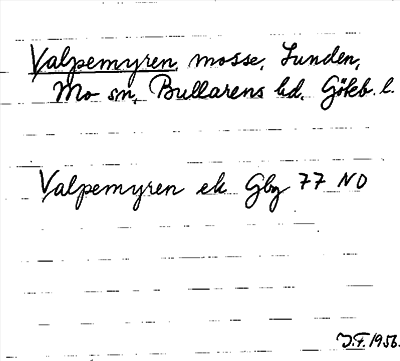 Valpemyren, mosse, Lunden,
Mo sn, Bullarens hd, Göteb. l.
Valpemyren ek Gbg 77 NO
J.F. 1956.